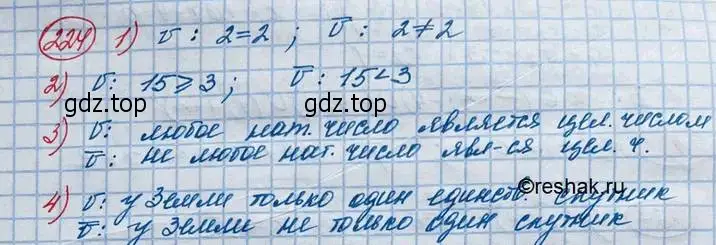 224 1) v : 2=2 ; v̅ : 2≠2
2) v : 15⩾3 ; v̅ : 15<3
gdz.top gdz.top
3) v : любое нат. число является цел. числом
v̅ : не любое нат. число явл-ся цел. ч.
©reshak.ru
4) v : у Земли только один единств. спутник
v̅ : у Земли не только один спутник
gdz.top